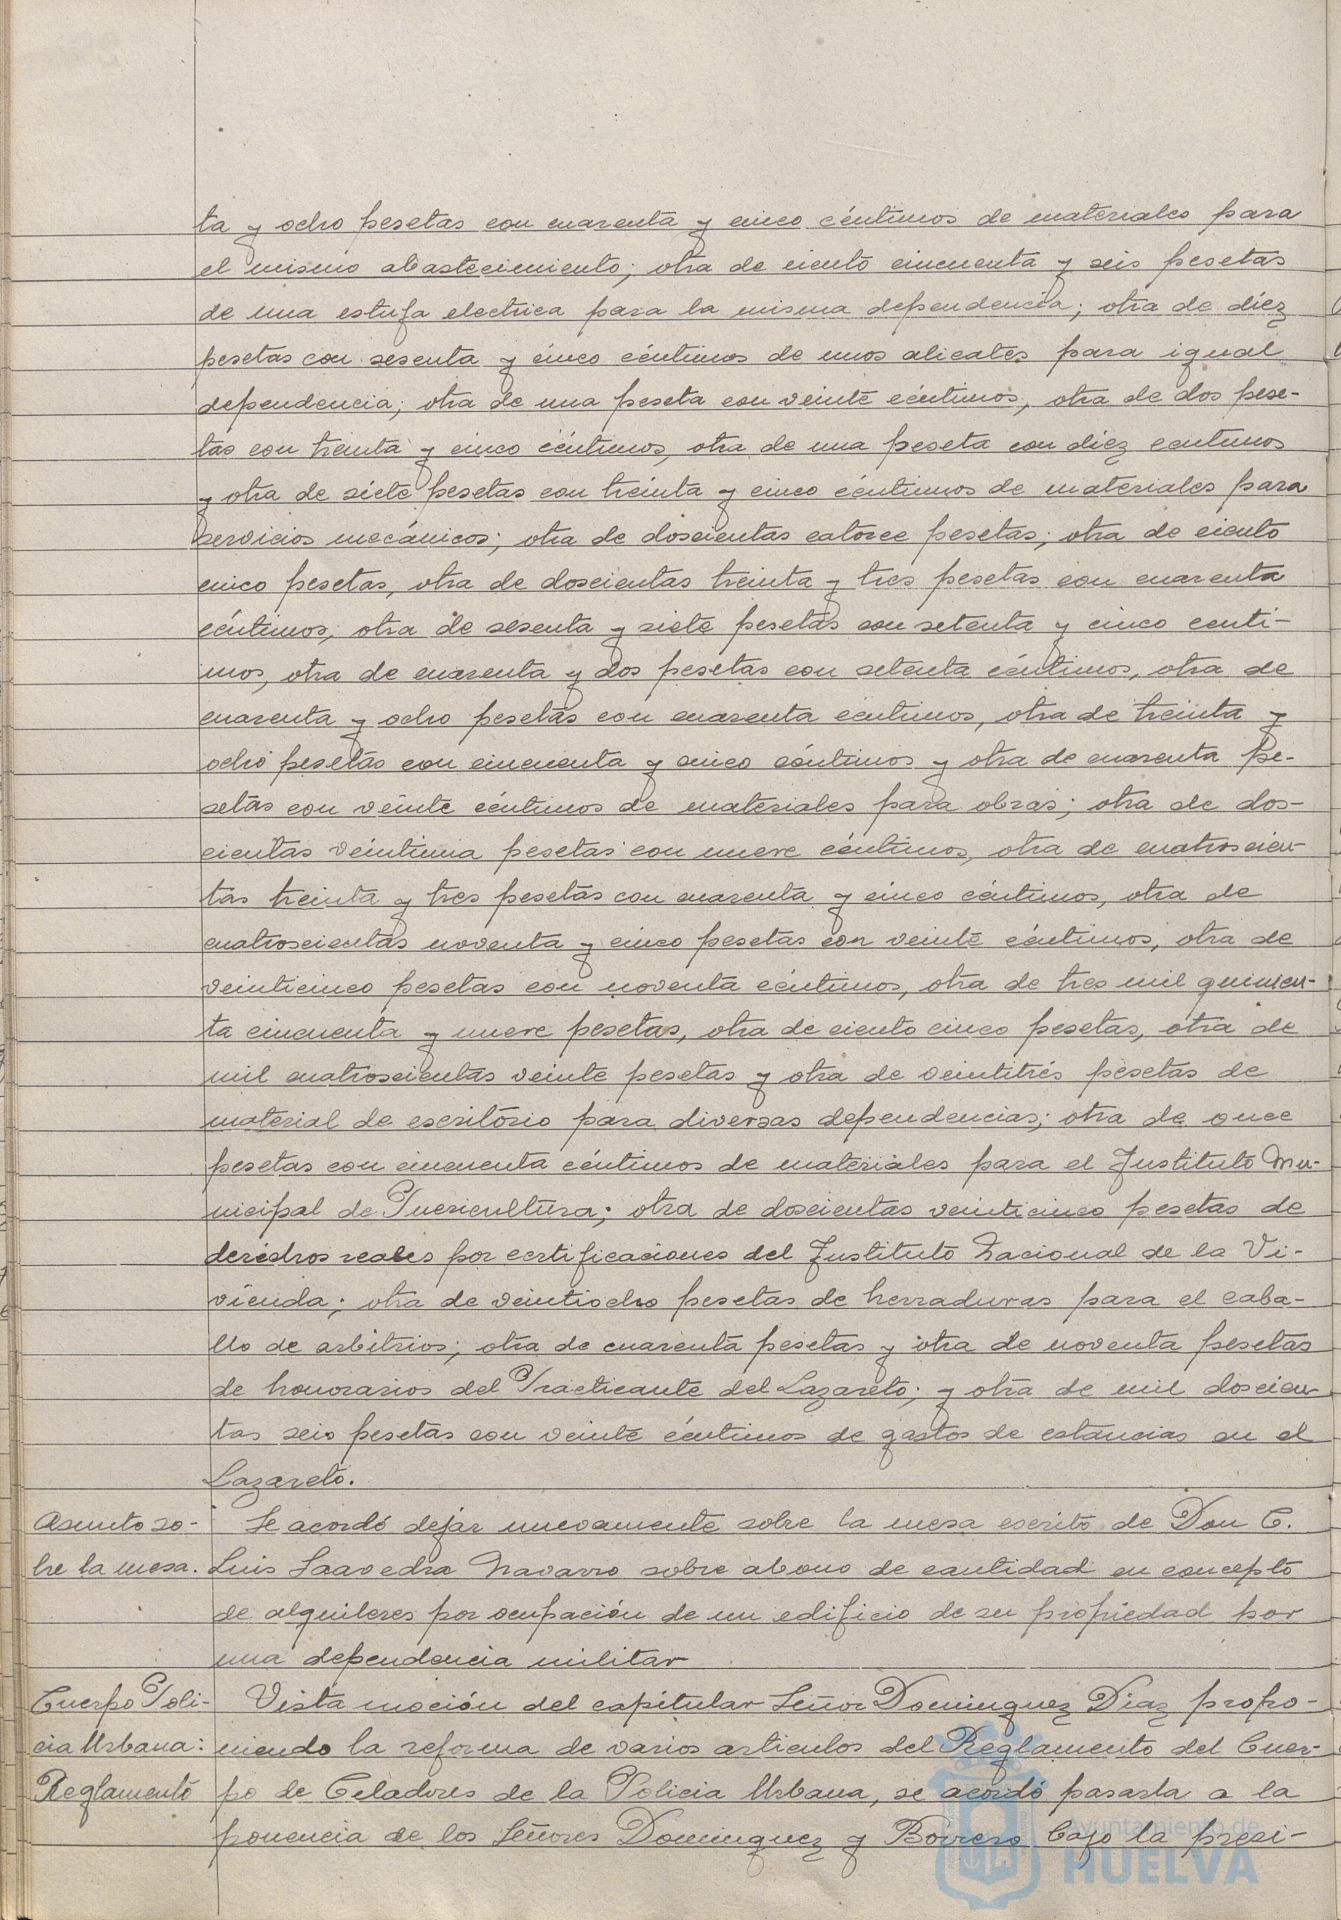 ta y ocho pesetas con cuarenta y cinco céntimos de materiales para
el mismo abastecimiento; otra de ciento cincuenta y seis pesetas
de una estufa electrica para la misma dependencia; otra de diez
pesetas con sesenta y cinco céntimos de unos alicates para igual
dependencia; otra de una peseta con veinte céntimos, otra de dos pese-
tas con treinta y cinco céntimos, otra de una peseta con diez centimos
y otra de siete pesetas con treinta y cinco céntimos de materiales para
servicios mecánicos; otra de doscientas catorce pesetas; otra de ciento
cinco pesetas, otra de doscientas treinta y tres pesetas con cuarenta
céntimos, otra de sesenta y siete pesetas con setenta y cinco centi-
mos, otra de cuarenta y dos pesetas con setenta céntimos, otra de
cuarenta y ocho pesetas con cuarenta centimos, otra de treinta y
ocho pesetas con cincuenta y cinco céntimos y otra de cuarenta pe-
setas con veinte céntimos de materiales para obras; otra de dos-
cientas veintiuna pesetas con nueve céntimos, otra de cuatroscien-
tas treinta y tres pesetas con cuarenta y cinco céntimos, otra de
cuatroscientas noventa y cinco pesetas con veinte céntimos, otra de
veinticinco pesetas con noventa céntimos, otra de tres mil quinien-
ta cincuenta y nueve pesetas, otra de ciento cinco pesetas, otra de
mil cuatroscientas veinte pesetas y otra de veintitrés pesetas de
material de escritorio para diversas dependencias; otra de once
pesetas con cincuenta céntimos de materiales para el Instituto Mu-
nicipal de Puericultura; otra de doscientas veinticinco pesetas de
derechos reales por certificaciones del Instituto Nacional de la Vi-
vienda; otra de veintiocho pesetas de herraduras para el caba-
llo de arbitrios; otra de cuarenta pesetas y otra de noventa pesetas
de honorarios del Practicante del Lazareto; y otra de mil doscien-
tas seis pesetas con veinte céntimos de gastos de estancias en el
Lazareto.
Asunto so-
bre la mesa.
Se acordó dejar nuevamente sobre la mesa escrito de Don C.
Luis Saavedra Navarro sobre abono de cantidad en concepto
de alquileres por ocupación de un edificio de su propiedad por
una dependencia militar
Cuerpo Poli-
cia Urbana:
Reglamento
Vista moción del capitular Señor Dominguez Diaz propo-
niendo la reforma de varios articulos del Reglamento del Cuer-
po de Celadores de la Policia Urbana, se acordó pasarla a la
ponencia de los Señores Dominguez y Borrero bajo la presi-
Ayuntamiento de
HUELVA